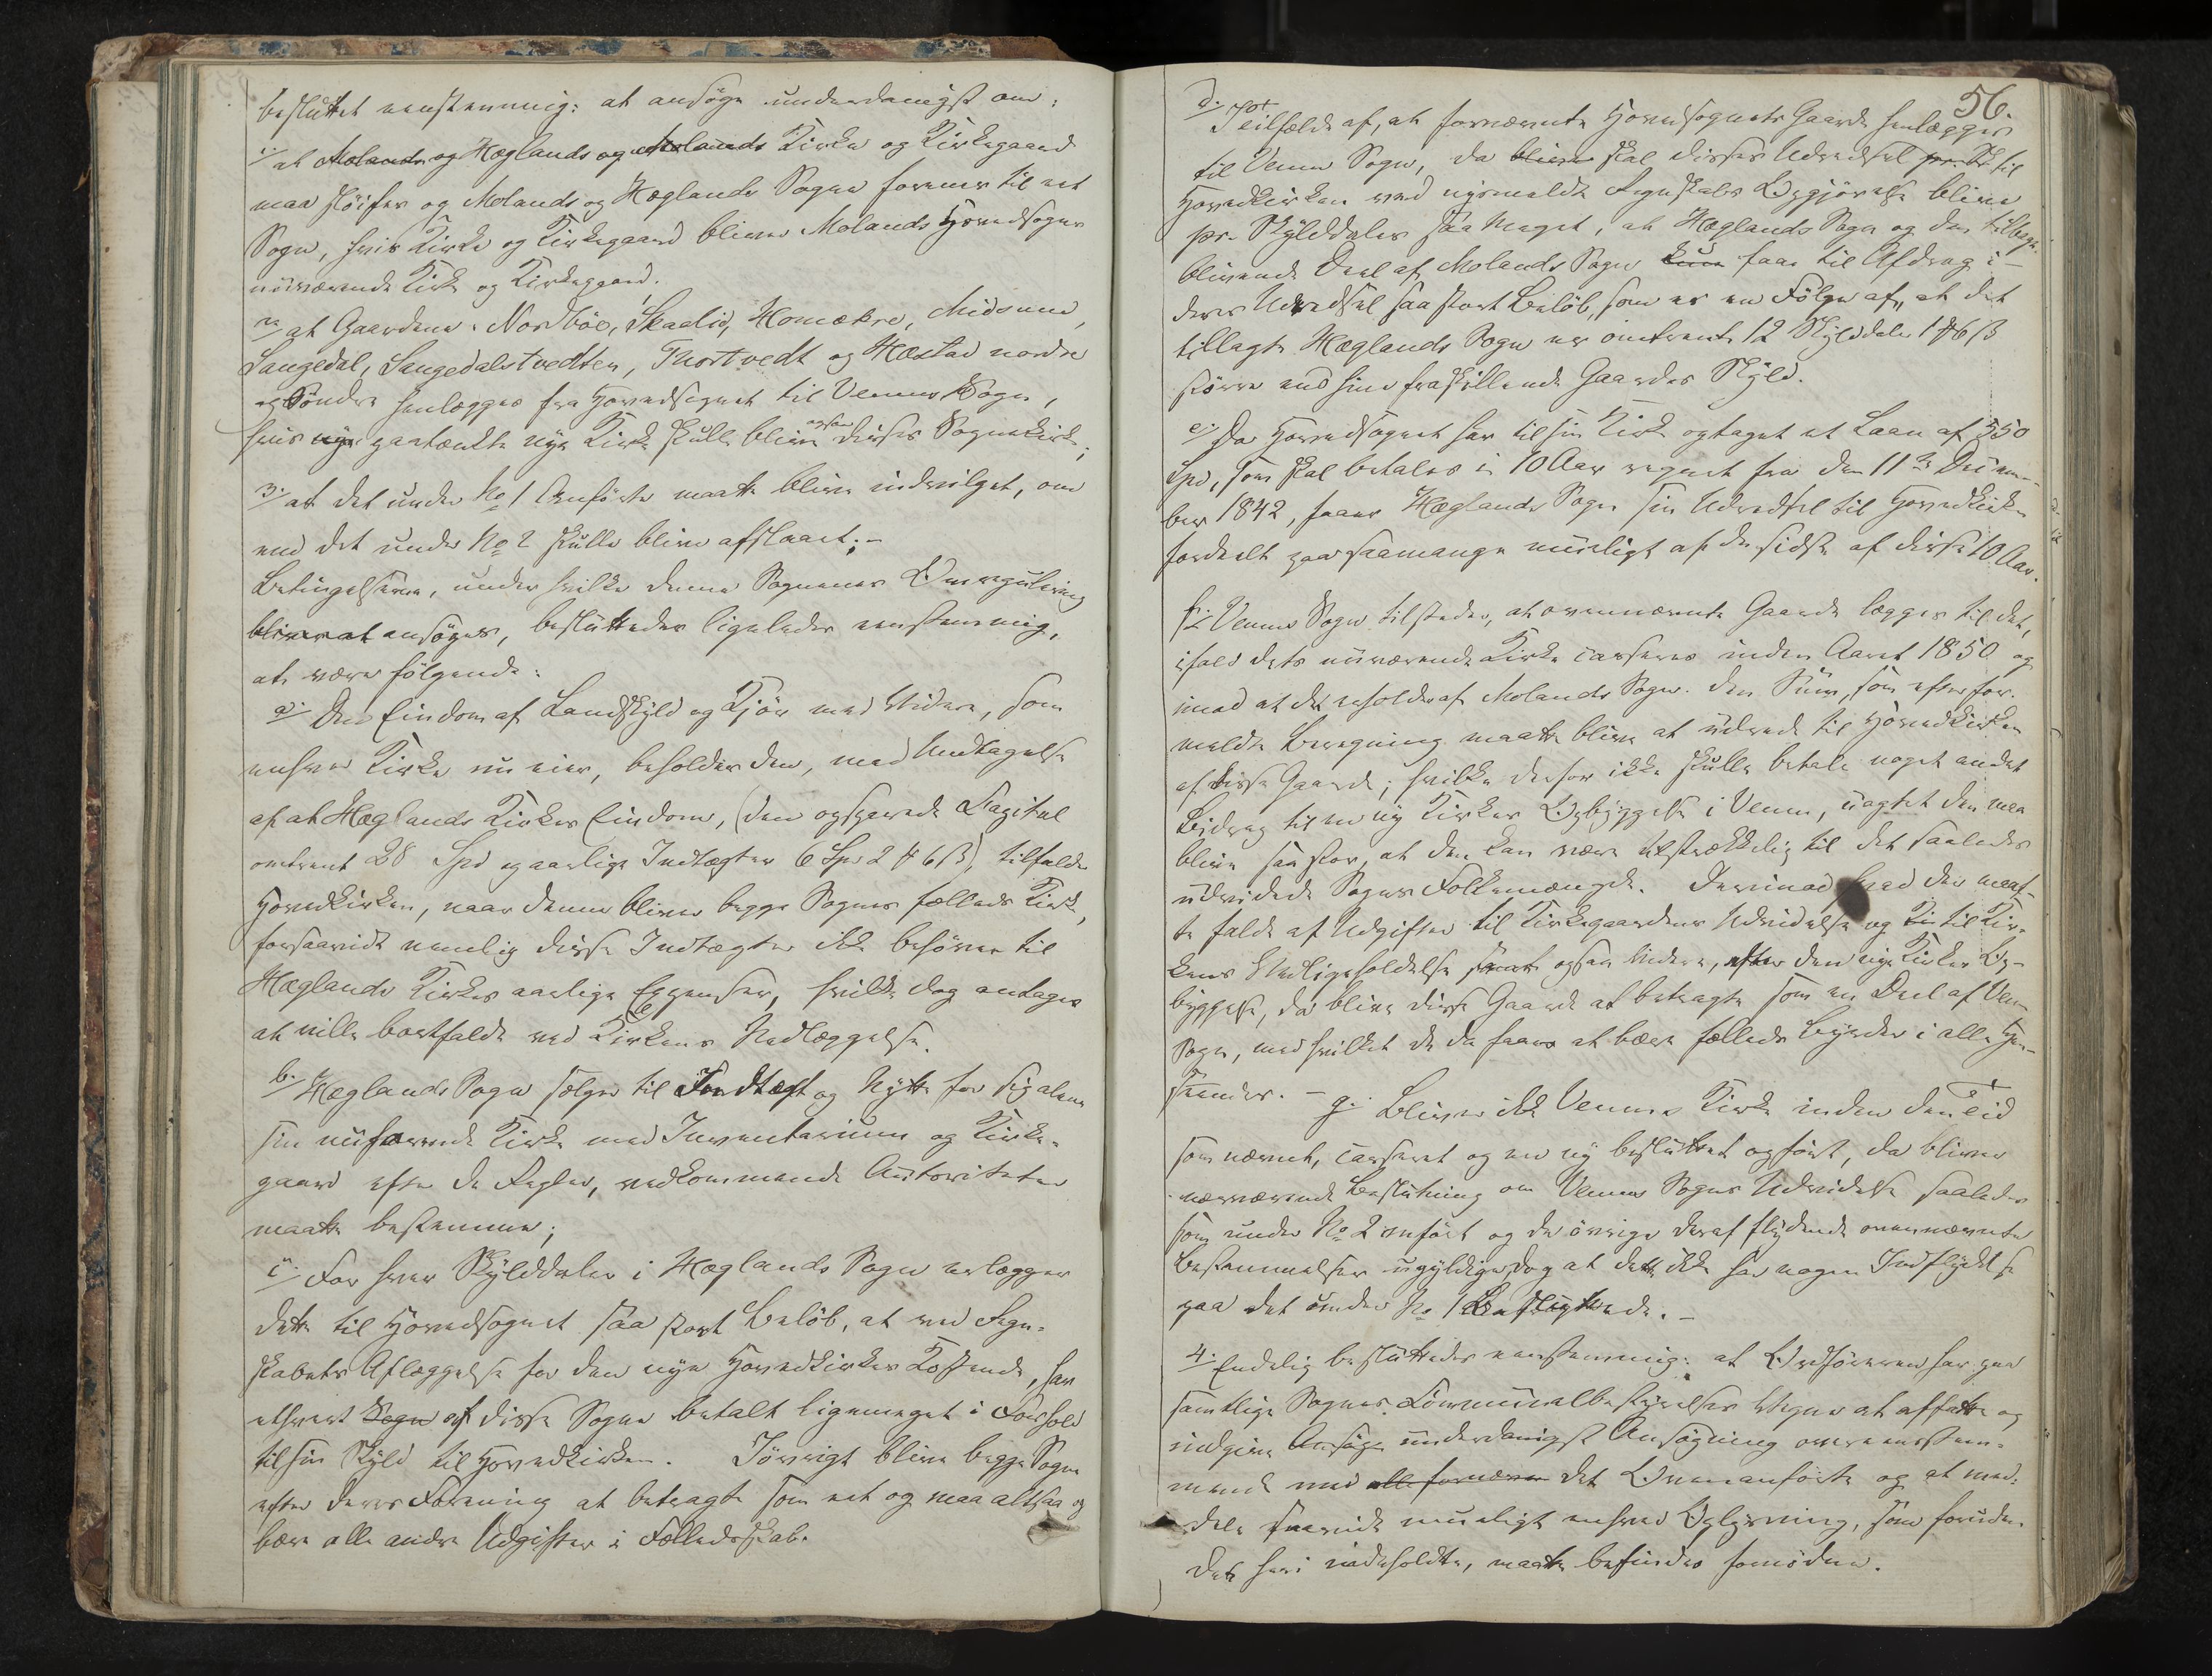 besluttet eenstemmig: at ansøge underdanigst om:
1./ at Molands og Hæglands og Molands Kirke og Kirkegaard
maa sløifes og Molands og Hæglands Sogne forenes til eet
Sogn, hvis Kirke og Kirkegaard bliver Molands Hovedsogns
nuværende Kirke og Kirkegaard.
2./ at Gaardene: Nordböe, Skaalid, Homækre, Midsund,
Sangedal, Sangedalstvedten, Thortvedt og Hæstad nordre
og Söndre henlægges fra Hovedsognet til Vennes Sogn,
hvis nye paatænkte nye Kirke skulle blive ogsaa disses Sognekirke;
3./ at det under No 1 Anførte maatte blive indvilget, om
end det under No 2 skulle blive afslaaet;-
Betingelserne, under hvilke denne Sognenes Omregulering
bliver at ansøges, besluttedes ligeledes eenstemmig,
at være følgende:
a./ Den Eiendom af Landskyld og Kjör med Videre, som
enhver Kirke nu eier, beholder den, med Undtagelse
af at Hæglands Kirkes Eiendom, (den opsparede Capital
omtrent 28 Spd og aarlige Indtægter 6 Spd 2 # 6 ß), tilfalder
Hovedkirken, naar denne bliver begge Sognes fælleds Kirke,
forsaavidt nemlig disse Indtægter ikke behøves til
Hæglands Kirkes aarlige Expenser, hvilke dog antages
at ville bortfalde ved Kirkens Nedlæggelse.
b./ Hæglands Sogn sælger til Indtægt og Nytte for sig alene
sin nuværende Kirke med Inventarium og Kirke-
gaard efter de Regler, vedkommende Autoriteter
maatte bestemme;
c./ For hver Skylddaler i Hæglands Sogn erlægger
dette til Hovedsognet saa stort Beløb, at ved Regn-
skabets Aflæggelse for den nye Hovedkirkes Kostende, har
ethvert Sogn af disse Sogne betalt ligemeget i Forhold
til sin Skyld til Hovedkirken. Iøvrigt blive begge Sogne
efter deres Forening at betragte som eet og maa altsaa og
bære alle andre Udgifter i Fælledsskab.
56.
d./ I Tilfælde af, at fornævnte Hovedsognets Gaarde henlægges
til Venne Sogn, da blive skal disses Udredsel pr. Sk til
Hovedkirken ved nysmeldte Regnskabs Opgjørelse blive
pr. Skylddaler saa Meget, at Hæglands Sogn og den tilbage-
blivende Deel af Molands Sogn kun faae til Afdrag i
deres Udredsel saa stort Beløb, som er en Følge af, at det
tillagte Hæglands Sogn er omtrent 12 Skylddaler 1 # 6 ß
større end hine fraskillende Gaardes Skyld.
e./ Da Hovedsognet har til sin Kirke optaget et Laan af 550
Spd, som skal betales i 10 Aar regnet fra den 11te Decem-
ber 1842, faaer Hæglands Sogn sin Udredsel til Hovedkirken
fordeelt paa saamange mueligt af de sidste af disse 10 Aar.
f./ Venne Sogn tilsteder, at ovennævnte Gaarde lægges til det,
ifald dets nuværende Kirke casseres inden Aaret 1850 og
imod at det erholder af Molands Sogn den Sum, som efter for-
meldte Beregning maatte blive at udrede til Hovedkirken
af disse Gaarde; hvilke derfor ikke skulle betale noget andet
Bidrag til en ny Kirkes Opbyggelse i Venne, uagtet den maa
blive saa stor, at den kan være tilstrækkelig til det saaledes
udvidede Sogns Folkemængde. Derimod hvad der maat-
te falde af Udgifter til Kirkegaardens Udvidelse og Ki til Kir-
kens Vedligeholdelse samt ogsaa Videre, efter den nye Kirkes Op-
byggelse, da blive disse Gaarde at betragte som en Deel af Venne
Sogn, med hvilket de da faaer at bære fælleds Byrder i alle Hen-
seender. - g. Bliver ikke Vennes Kirke inden den Tid
som nævnt, casseret og en ny besluttet opført, da bliver
nærværende Beslutning om Vennes Sogns Udvidelse saaledes
som under No 2 anført og de øvrige deraf flydende ovennævnte
Bestemmelser ugyldige, dog at dette ikke har nogen Indflydelse
paa det under No 1 Besluttede. -
4. Endelig besluttedes eenstemmig: at Ordføreren har paa
samtlige Sognes Communalbestyrelsers Vegne at affatte og
indgive Ansøge underdanigst Ansøgning overeensstem-
mende med alle fornævn det Ovenanførte og at med-
dele saavidt mueligt enhver Oplysning, som foruden
det heri indeholdte, maatte befindes fornøden.